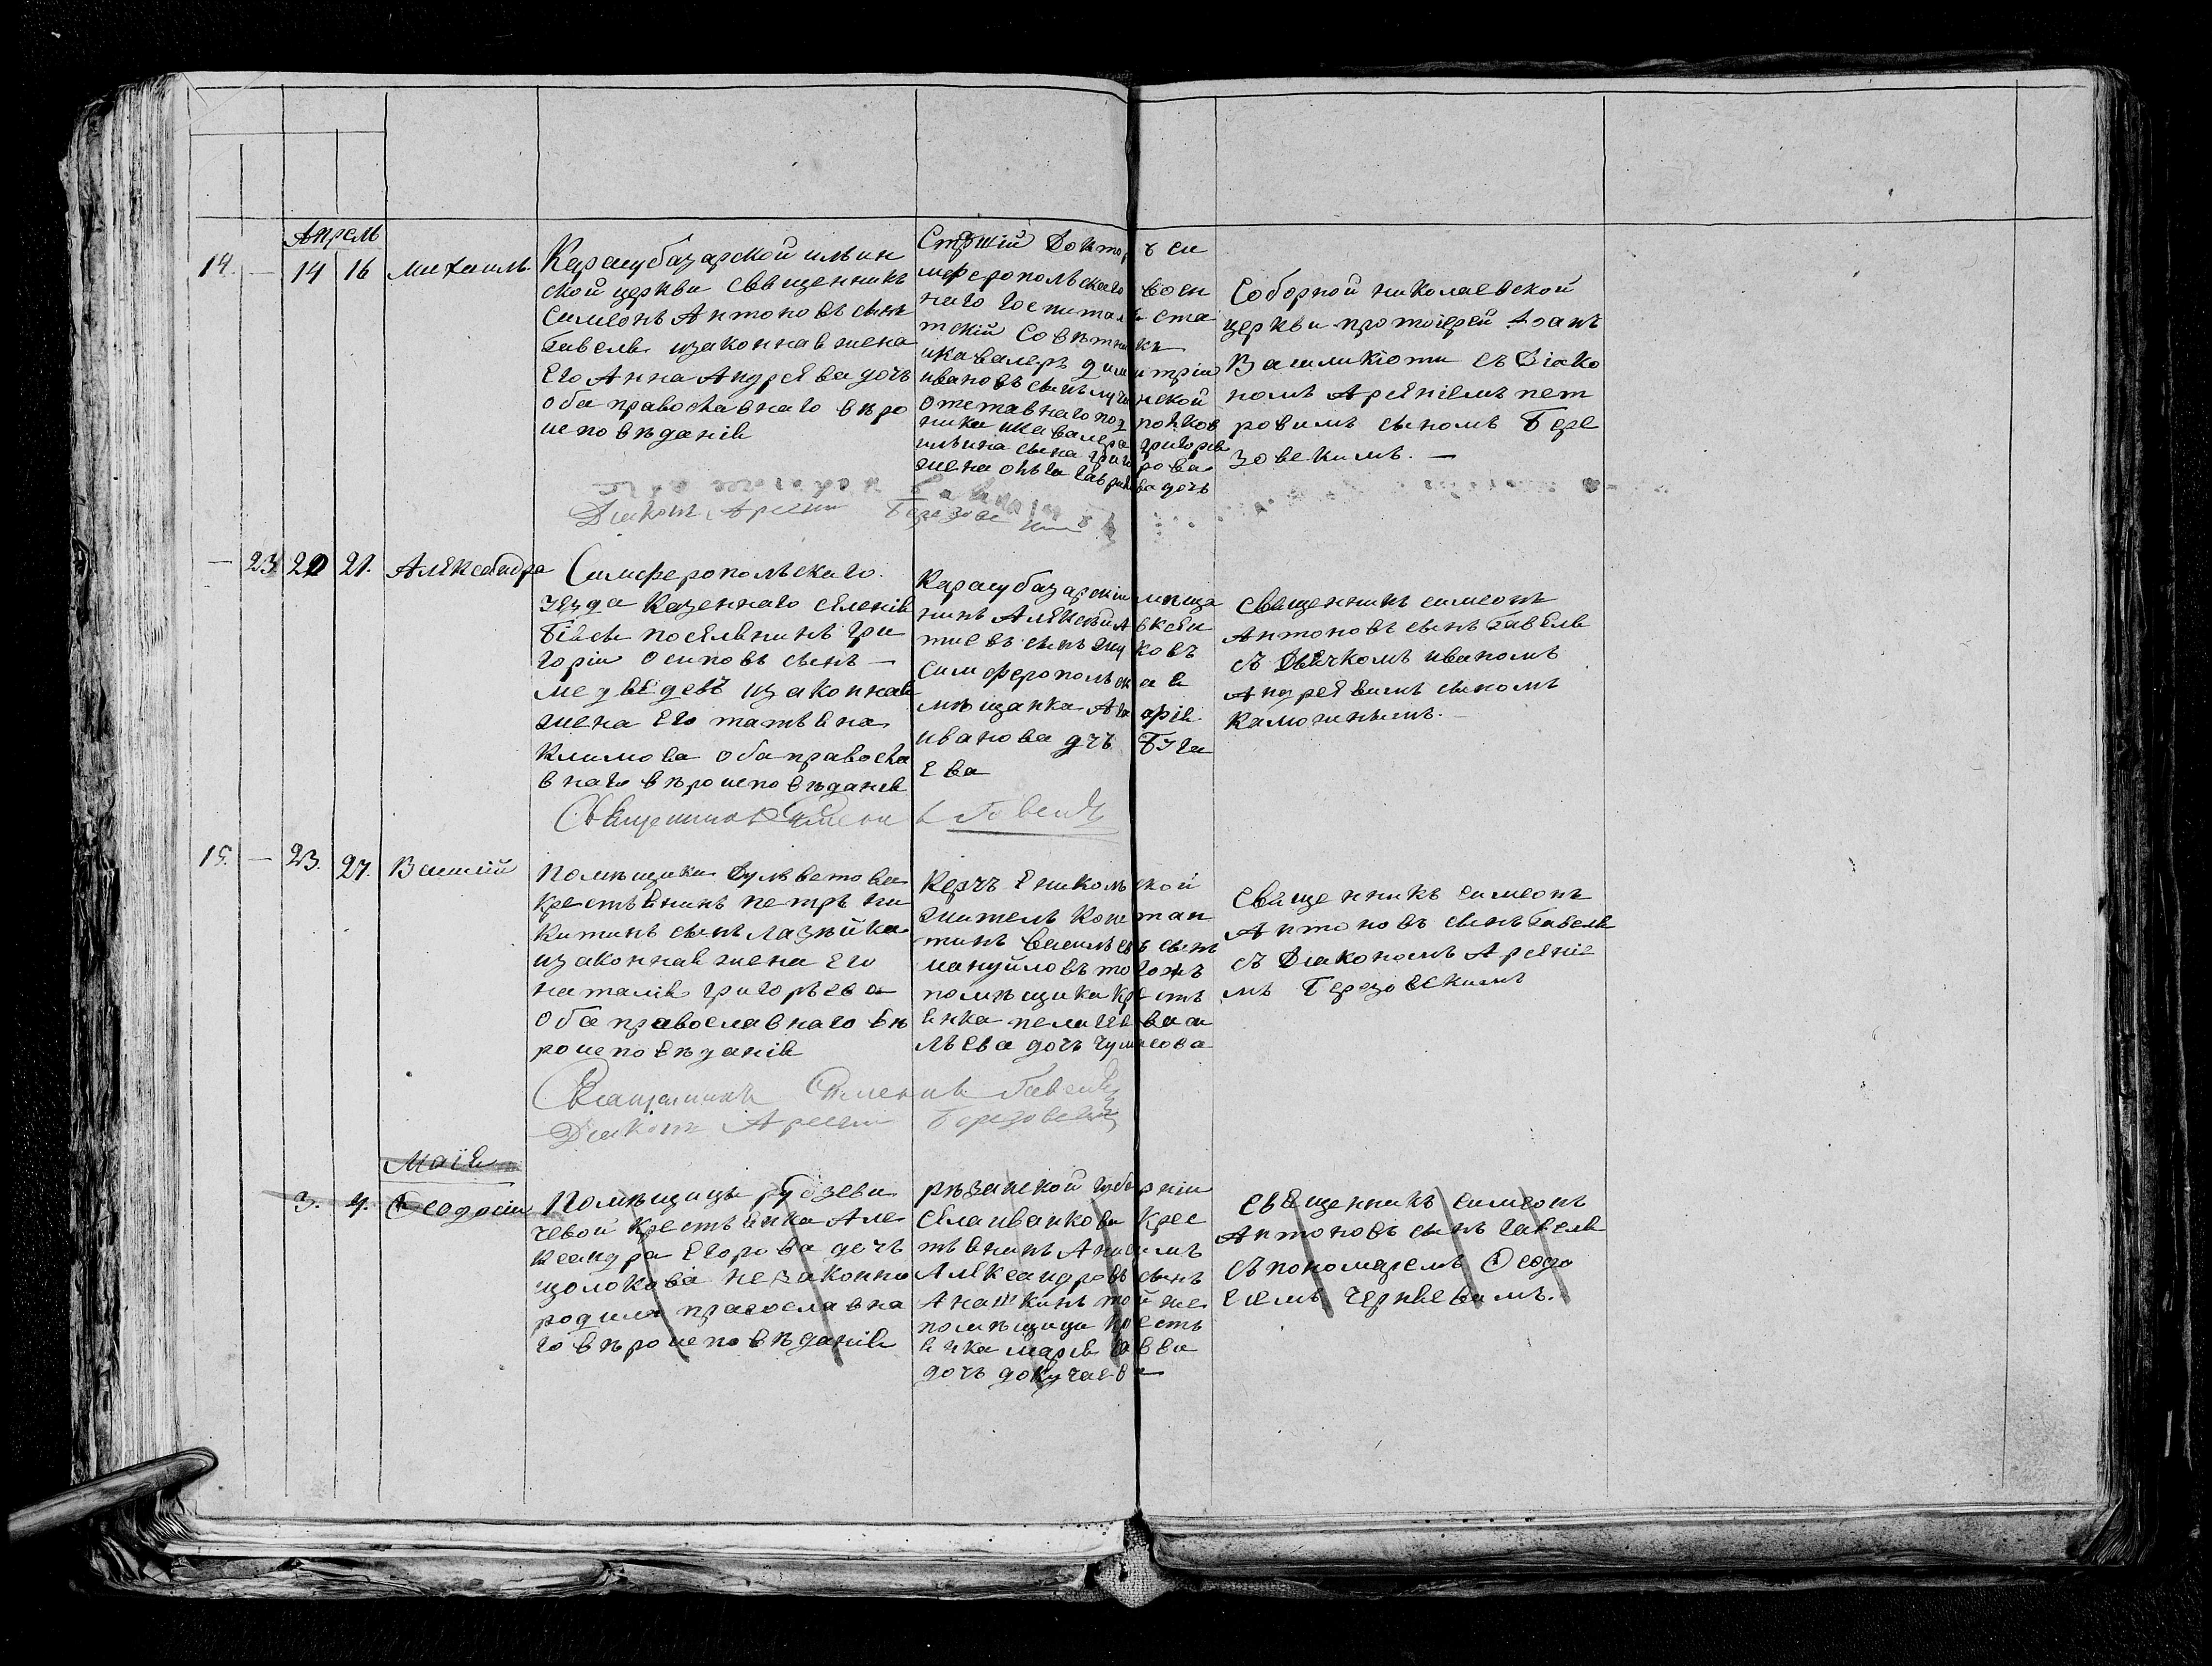 Апрель
14. — 14 16 Михаилъ.
Карасубазарской ильин
ской церкви священникъ
Симеонъ Антоновъ сынъ
Гавель изаконная жена
Его Анна Андреева дочь
оба православнаго вѣро
исповѣданія
Стршій Докторъ си
мферопольскаго воен
наго госпиталя ста
тскій Совѣтникъ
икавалеръ Димитрій
ивановъ сынъ
отставнаго полков
ника икавалера григорія
ильина сына
жена ольга гаврилова дочь
Соборной николаевской
церкви протоіерей Іоанъ
съ Діако
номъ Арсеніемъ пет
ровымъ сыномъ Бере
зовскимъ. —
Діаконъ Арсеній Березовскій
— 23 20 21. Александра
Симферопольскаго
уезда Казеннаго селенія
поселянинъ гри
горій осиповъ сынъ —
медведевъ изаконная
жена Его татьяна
Климова оба правосла
внаго вѣроисповѣданія
Карасубазарскій мѣща
нинъ Алексѣй Авксен
тіевъ сынъ ковъ
симферопольская
мѣщанка Агарія
иванова дчъ Буга
ева
священникъ симеонъ
Антоновъ сынъ Гавель
съ Дьячкомъ иваномъ
Андреевымъ сыномъ
Священникъ Симеонъ Гавель
15. — 23. 27. Василій
Помѣщика
крестьянинъ петръ ни
китинъ сынъ
изаконная жена Его
наталія григорьева
оба православнаго вѣ
роисповѣданія
Керчъ Еникольской
житель Констан
тинъ васильевъ сынъ
мануйловъ тогожъ
помѣщика кресть
янка пелагея васи
льева дочь
священникъ симеонъ
Антоновъ сынъ Гавель
съ Діакономъ Арсеніе
мъ Березовскимъ
Священникъ Симеонъ Гавель
Діаконъ Арсеній Березовскій
Маія
3. 4. Ѳеодосій
Помѣщицы
чевой крестьянка Але
ксандра Егорова дочь
щолокова незаконно
родила православна
го вѣроисповѣданія
рязанской губерніи
села иванкова крес
тьянинъ Анисимъ
Александровъ сынъ
Анашкинъ той же
помѣщицы кресть
янка марія савва
дочь докучаева
священникъ симеонъ
Антоновъ сынъ гавель
съ пономаремъ Ѳеодо
сіемъ